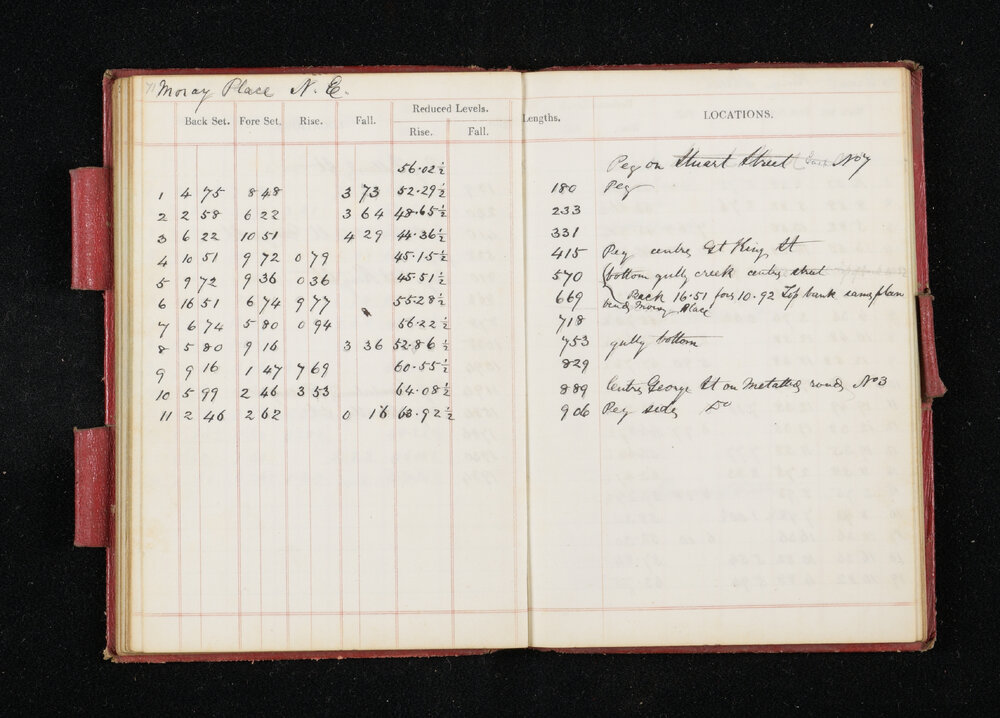 Moray Place N. E.
Reduced Levels.
Back Set. Fore Set. Rise. Fall. Rise. Fall. Lengths. LOCATIONS.
56.02½ Peg on Stuart Street East No 7
1 4 75 8 48 3 73 52.29½ 180 Peg
2 2 58 6 22 3 64 48.65½ 233
3 6 22 10 51 4 29 44.36½ 331
4 10 51 9 72 0 79 45.15½ 415 Peg centre Gt King St
5 9 72 9 36 0 36 45.51½ 570 bottom gully creek centre street
6 16 51 6 74 9 77 55.28½ 669 Back 16.51 for 10.92 Top bank same plan
Moray Place
7 6 74 5 80 0 94 56.22½ 718
8 5 80 9 16 3 36 52.86½ 753 gully bottom
9 9 16 1 47 7 69 60.55½ 829
10 5 99 2 46 3 53 64.08½ 889 Centre George St on Metalled road No 3
11 2 46 2 62 0 16 63.92½ 906 Peg side Do